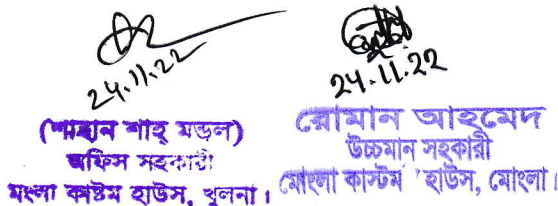 24.11.22
(শাহান শাহ্ মন্ডল)
অফিস সহকারী
মংলা কাষ্টম হাউস, খুলনা।
24.11.22
রোমান আহমেদ
উচ্চমান সহকারী
মোংলা কাস্টম হাউস, মোংলা।